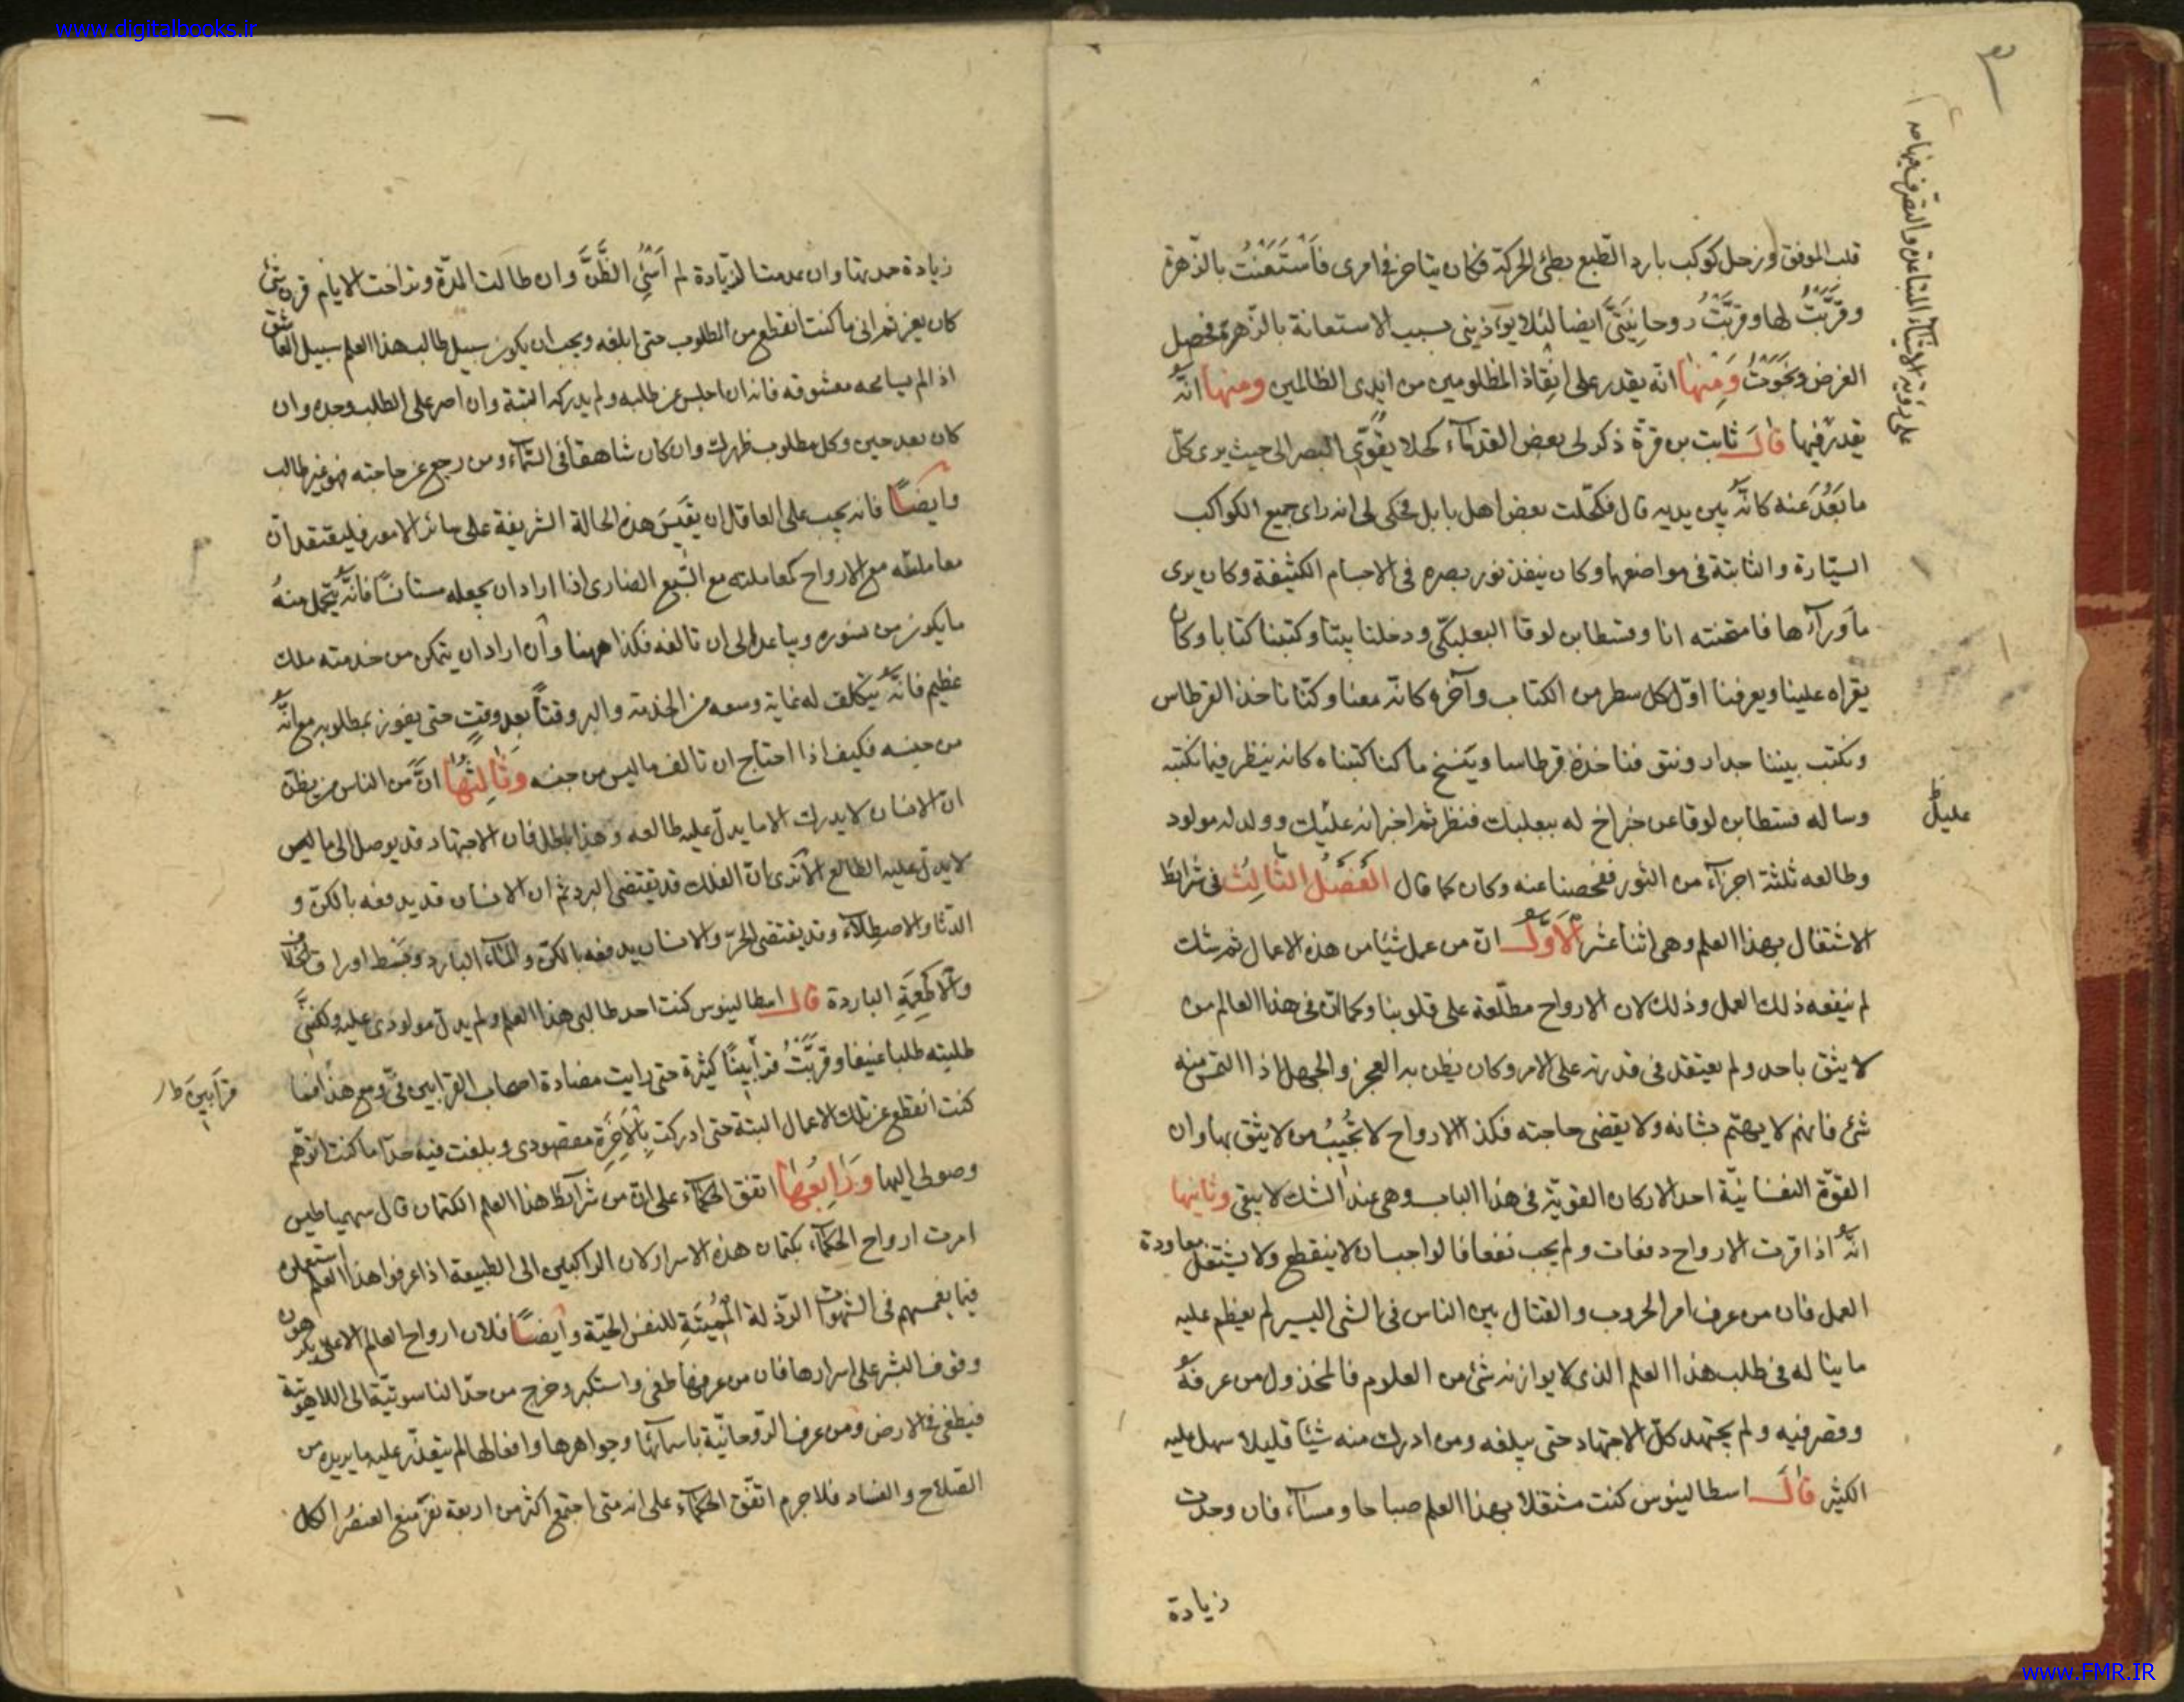 www.digitalbooks.ir
على رؤية الاشياء المتباعدة والتصرف فيها صه
قلب الموفق وزحل كوكب بارد الطبع بطئ الحركة فكان يتاخر في امرى فَاسْتَعَنْتُ بالزّهرة
وقرَّبْتُ لها وقرَّبْتُ روحانِيَتى ايضا لئلا يوآذينى بسبب الاستعانة بالزهرة فحصل
الغرض ونَجَوْتُ وَمِنْها انه يقدر على انِقاذ المظلومين من ايدى الظالمين ومنها انّهُ
يقدر فيها قالَ ثابت بن قرّة ذكر لى بعض القدمآء كحلا يقوّى البصر الى حيث يرى كلّ
ما بَعُدَ عنه كانّه بين يديه قال فكحّلت بعض اهل بابل فحكى لى انه راى جميع الكواكب
السيّارة والثابتة فى مواضعها وكان ينفذ نور بصره فى الاجسام الكثيفة وكان يرى
ما ورآءها فامتحنته انا وقسطا بن لوقا البعلبكّى ودخلنا بيتا وكتبنا كتابا وكان
يقراه علينا ويعرفنا اوّل كل سطر من الكتاب وآخره كانّه معنا وكنّا ناخذ القرطاس
ونكتب بيننا جدار وثيق فناخذه قرطاسا ويَنسخ ما كنا كتبناه كانه ينظر فيما نكتبه
وساله قسطا بن لوقا عن خبر اخ له ببعلبك فنظر ثم اخبر انه عليك وولد له مولود
عليل
وطالعه ثلثة اجزآء من الثور ففحصنا عنه وكان كما قال الفَصْلُ الثالِثُ فى شرائط
الاشتغال بهذا العلم وهى اثنا عشر الاوّل انّ من عمل شيئا من هذه الاعمال ثم شك
لم ينفعه ذلك العمل وذلك لان الارواح مطّلعة على قلوبنا وكما انّ فى هذا العالم من
لا يثق باحد ولم يعتقد فى قدرته على الامر وكان يظن به العجز والجهل اذا التمس منه
شئ فانهم لا يهتم بشانه ولا يقضى حاجته فكذا الارواح لا تُجيبُ من لا يثق بها وان
القوّة النفسانيّة احد الاركان القويّة فى هذا الباب وهى عند الشك لا يبقى وثانيها
انّه اذا قرت الارواح دفعات ولم يجب نفعا فالواجب ان لا ينقطع ولا يشتغل بمعاودة
العمل فان من عرف امر الحروب والقتال بين الناس فى الشى اليسير لم يعظم عليه
ما يناله فى طلب هذا العلم الذى لا يوازنه شئ من العلوم فالمخذول من عرفهُ
وقصر فيه ولم يجتهد كلّ الاجتهاد حتى يبلغه ومن ادرك منه شيئا قليلا سهل عليه
الكثير قالَ اسطالينوس كنت مشتغلا بهذا العلم صباحا ومسآء فان وجدت
زيادة
زيادة حمدتها وان عدمت الزيادة لم اُسئِ الظَّنَّ وان طالت المدّة وتراخت الايام
كان يعز ثم انى ما كنت انقطع من المطلوب حتى ابلغه ويجب ان يكون سبيل طالب هذا العلم سبيل العاشق
اذا لم يسامحه معشوقه فانه ان اجلس عن طلبه ولم يدركه البتة وان اصر على الطلب وجده وان
كان بعد حين وكل مطلوب ظهرت وان كان شاهقا فى السّمآء ومن رجع عن حاجته فهو غير طالب
وايضًا فانه يجب على العاقل ان يقيَسَ هذه الحالة الشريفة على سائر الامور فليعتقد انّ
معاملته مع الارواح كمعاملته مع السّبع الضارى اذا اراد ان يجعله مستانسًا فانّه يتحمل منهُ
ما يكون من سوره ويباعد الى ان تالفه فكذا ههنا وان اراد ان يتمكن من خدمته ملك
عظيم فانّه يتكلف له غاية وسعه من الخدمة والبر وقتاً بعد وقتٍ حتى يفوز بمطلوبه مع انّهُ
من جنسه فكيف اذا احتاج ان تالف ما ليس من جنسه وَثالِثُها انّ من الناس من يظنّ
انّ الانسان لا يدرك الا ما يدلّ عليه طالعه وهذا باطل فان الاجتهاد قد يوصل الى ما ليس
لا يدلّ عليه الطالع الا ترى انّ الفلك قد يقتضى البرد ثم ان الانسان قد يدفعه بالكنّ و
الدثار والاصطلآء وقد يقتضى الحرّ والانسان يدفعه بالكنّ والمآء البارد وبَسَط اوراق الخلاف
والاطعِمَةِ الباردة قال اسطالينوس كنت احد طالبى هذا العلم ولم يدلّ مولودى عليه ولكننّى
طلبته طلبا عنيفا وقرَّبْتُ قرابينًا كثيرة حتى رايت مضادة اصحاب القرابين فىّ ومع هذا فما
قرابين ط
كنت انقطع عن تلك الاعمال البتة حتى ادركت بِالاَخِرَةِ مقصودى وبلغت فيه حدّا ما كنت اتوهّم
وصولى اليها وَرابِعُها اتفق الحكمآء على انّ من شرآئط هذا العلم الكتمان قال سهمياطيس
امرت ارواح الحكمآء بكتمان هذه الاسرار لان الراكبين الى الطبيعة اذا عرفوا هذا العلم استعملوه
فيما يغمسهم فى الشهوات الرّذلة المُميتَةِ للنفس الحيّة وايضًا فلان ارواح العالم الاعلى يكرهون
وقوف البشر على اسرارها فان من عرفها طغى واستكبر وخرج من حدّ الناسوتيّة الى اللاهوتية
فيطغى فى الارض ومن عرف الرّوحانيّة باسمآئها وجواهرها وافعالها لم يتعذّر عليه ما يريده من
الصّلاح والفساد فلا جرم اتفّق الحكمآء على انه متى اجتمع اكثر من اربعة نفر منع العنصُر الكل
www.FMR.IR